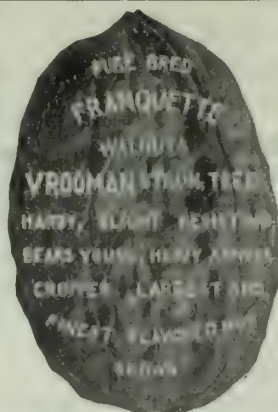 PURE BRED
FRANQUETTE
WALNUTS
VROOMAN STRAIN TREE
HARDY, BLIGHT
BEARS YOUNG, HEAVY ANNUAL
CROPPER, LARGEST AND
FINEST FLAVORED NUT
GROWN